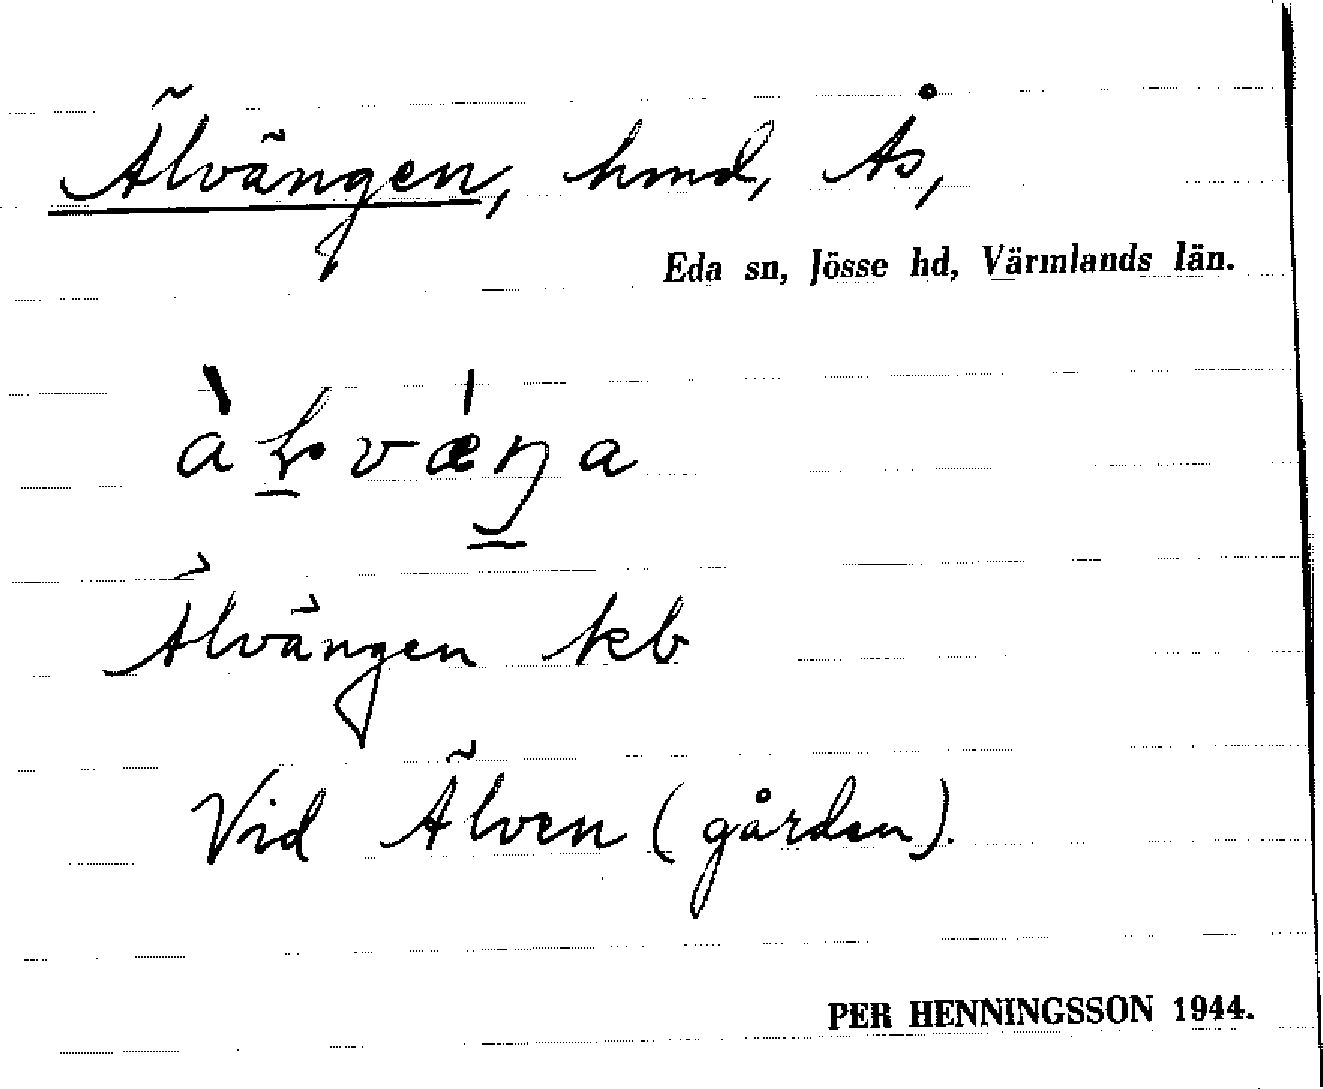 Älvängen, hmd, Ås,
Eda sn, Jösse hd, Värmlands län.
Älvängen kb
Vid Älven (gården).
PER HENNINGSSON 1944.